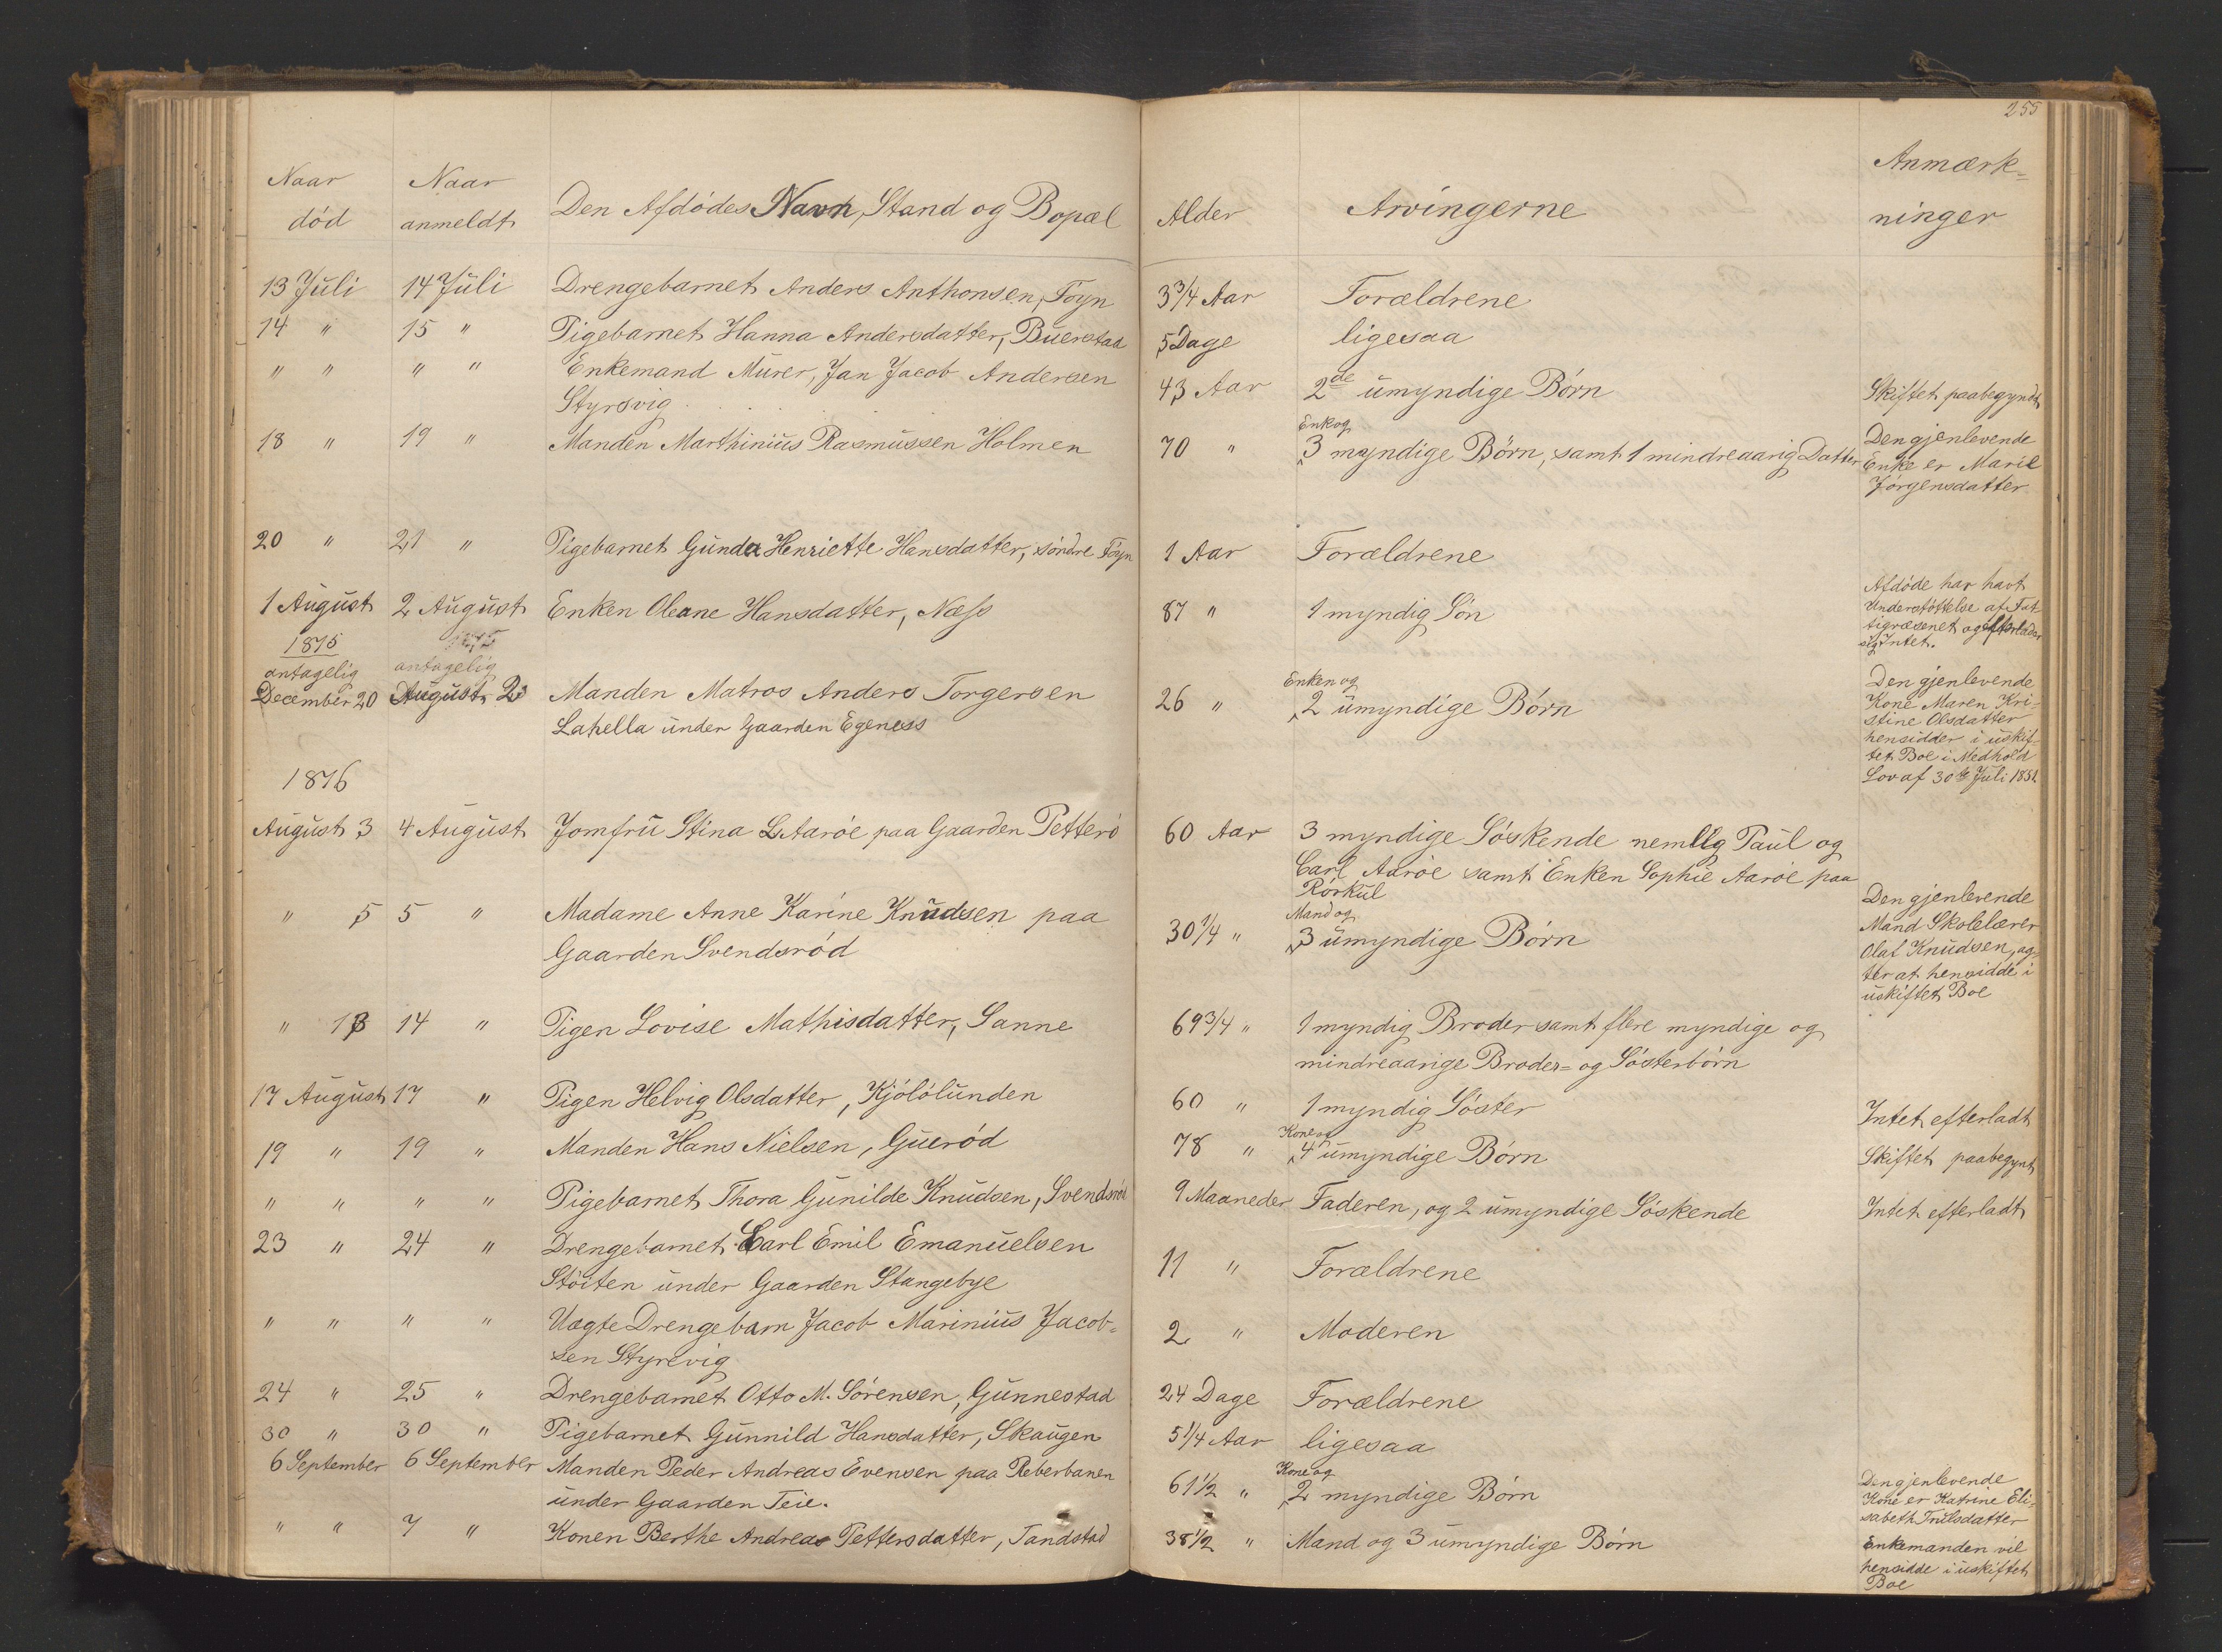 255
Naar død
Naar anmeldt
Den Afdødes Navn, Stand og Bopæl
Alder
Arvingerne
Anmærk-
ninger
13 Juli 14 Juli Drengebarnet Anders Anthonsen, Föyn 3 3/4 Aar Forældrene
14 " 15 " Pigebarnet Hanna Andersdatter, Buerstad 5 Dage ligesaa
" " " " Enkemand Murer, Jan Jacob Andersen 43 Aar 2de umyndige Børn Skiftet paabegyndt
Styrsvig
18 " 19 " Manden Marthinius Rasmussen Holmen 70 " Enke og 3 myndige Børn, samt 1 mindreaarig Datter
Den gjenlevende
Enke er Marie
Jørgensdatter
20 " 21 " Pigebarnet Gunda Henriette Hansdatter, søndre Föyn 1 Aar Forældrene
1 August 2 August Enken Oleane Hansdatter, Næss 87 " 1 myndig Søn
Afdøde har havt
Understøttelse af Fat
tigvæsenet og efterlader
sig Intet.
1875 1875
antagelig antagelig
December 20 August 2 Manden Matros Anders Torgersen 26 " Enken og 2 umyndige Børn
Lahella under Gaarden Egeness
Den gjenlevende
Kone Maren Kri-
stine Olsdatter
hensidder i uskif-
tet Boe i Medhold
Lov af 30te Juli 1851
1876
August 3 4 August Jomfru Stina L Aarøe paa Gaarden Petterø 60 Aar 3 myndige Søskende nemlig Paul og
Carl Aarøe samt Enken Sophie Aarøe paa
Rørkul
" 5 5 " Madame Anne Karine Knudsen paa 30 1/4 " Mand og 3 umyndige Børn
Gaarden Svendsrød
Den gjenlevende
Mand Skolelærer
Olaf Knudsen, ag-
ter at hensidde i
uskiftet Boe
" 13 14 " Pigen Lovise Mathisdatter, Sanne 69 3/4 " 1 myndig Broder samt flere myndige og
mindreaarige Broder= og Søsterbørn
17 August 17 " Pigen Helvig Olsdatter, Kjølølunden 60 " 1 myndig Søster Intet efterladt
19 " 19 " Manden Hans Nielsen, Guerød 78 " Kone og 4 umyndige Børn Skiftet paabegynt
" " " " Pigebarnet Thora Gunilde Knudsen, Svendsrød 9 Maaneder Faderen, og 2 umyndige Søskende Intet efterladt
23 " 24 " Drengebarnet Carl Emil Emanuelsen 11 " Forældrene
Støiten under Gaarden Stangebye
" " " " Uægte Drengebarn Jacob Marinius Jacob- 2 " Moderen
sen Styrsvig
24 " 25 " Drengebarnet Otto M. Sørensen, Gunnestad 24 Dage Forældrene
30 " 30 " Pigebarnet Gunnild Hansdatter, Skaugen 5 1/4 Aar ligesaa
6 September 6 September Manden Peder Andreas Evensen paa Reberbanen 61 1/2 " Kone og 2 myndige Børn
under Gaarden Teie.
Den gjenlevende
Kone er Katrine Eli-
sabeth Trulsdatter
" " 7 " Konen Berthe Andrea Pettersdatter, Tandstad 38 1/2 " Mand og 3 umyndige Børn
Enkemanden vil
hensidde i uskiftet
Boe